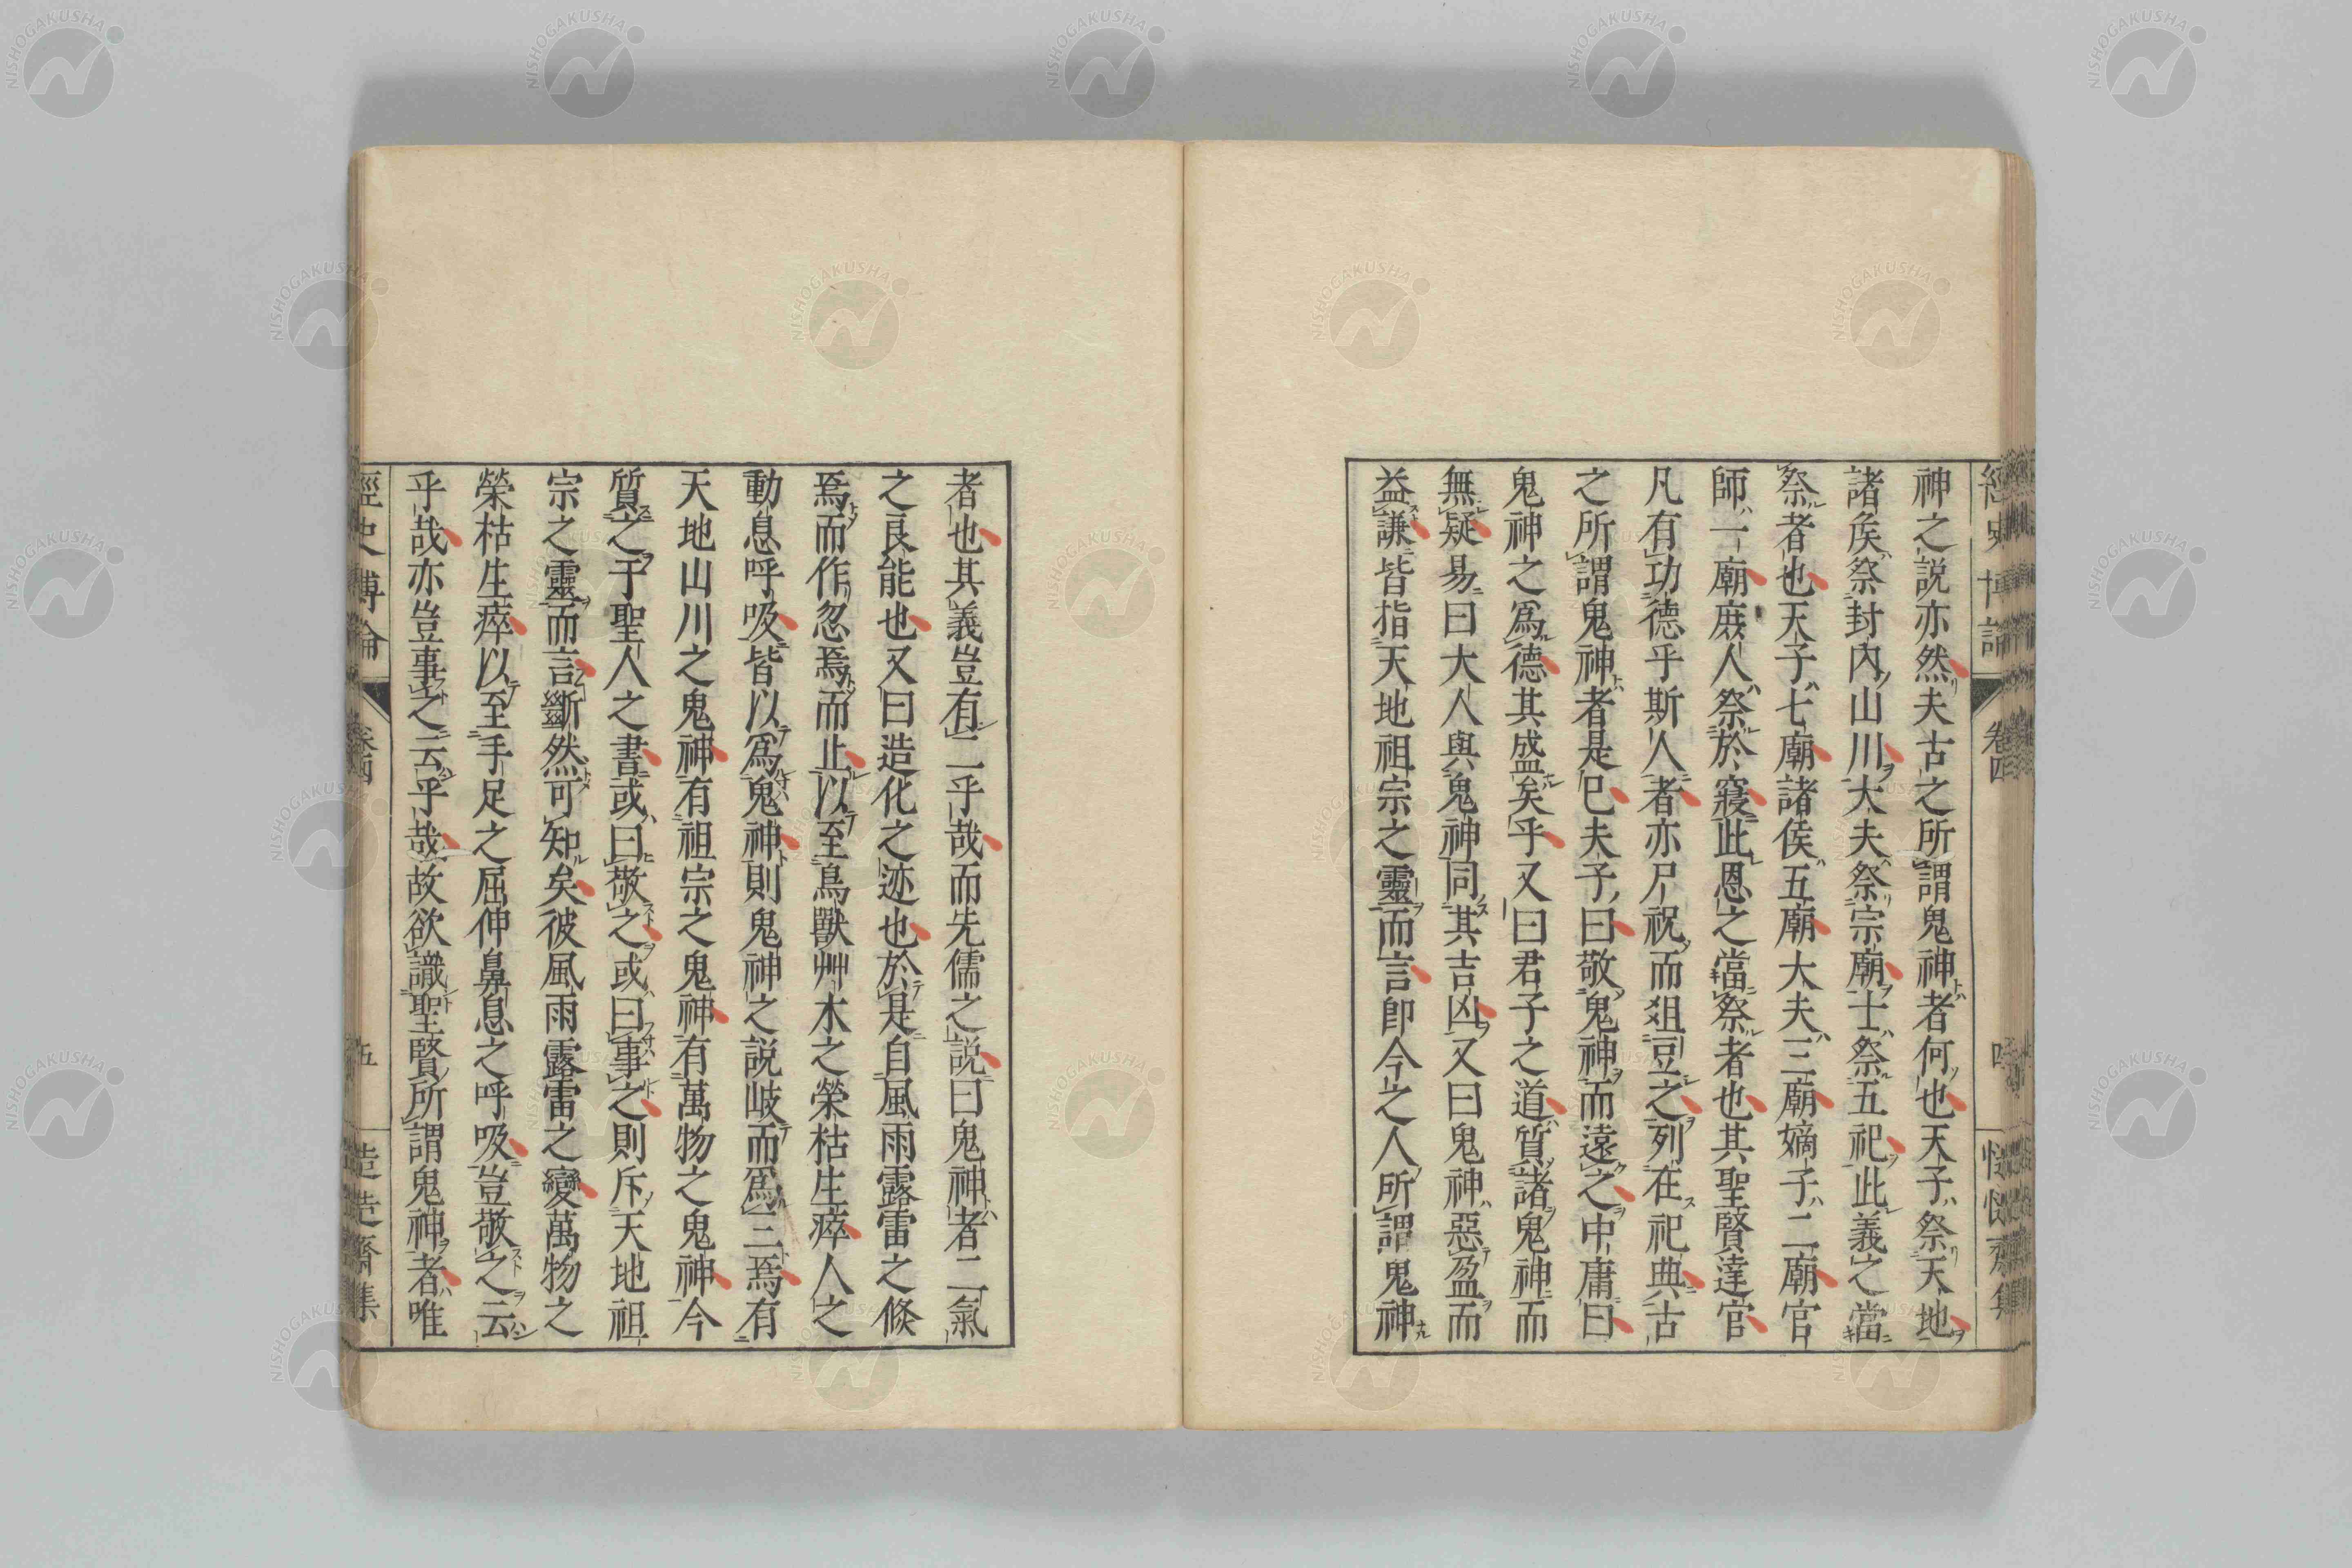 神之說亦然夫古之所謂鬼神者何也天子祭天地
諸矦祭封內山川大夫祭宗廟士祭五祀此義之當
祭者也天子七廟諸侯五廟大夫三廟嫡子二廟官
師一廟庶人祭於寢此恩之當祭者也其聖賢達官
凡有功德乎斯人者亦尸祝而俎豆之列在祀典古
之所謂鬼神者是已夫子曰敬鬼神而遠之中庸曰
鬼神之爲德其盛矣乎又曰君子之道質諸鬼神而
無疑易曰大人與鬼神同其吉凶又曰鬼神惡盈而
益謙皆指天地祖宗之靈而言卽今之人所謂鬼神
者也其義豈有二乎哉而先儒之說曰鬼神者二氣
之良能也又曰造化之迹也於是自風雨露雷之倐
焉而作忽焉而止以至鳥獸艸木之榮枯生瘁人之
動息呼吸皆以爲鬼神則鬼神之說岐而爲三焉有
天地山川之鬼神有祖宗之鬼神有萬物之鬼神今
質之于聖人之書或曰敬之或曰事之則斥天地祖
宗之靈而言斷然可知矣彼風雨露雷之變萬物之
榮枯生瘁以至手足之屈伸鼻息之呼吸豈敬之云
乎哉亦豈事之云乎哉故欲識聖賢所謂鬼神者唯
經史博論
卷四
五
NISHOGAKUSHA